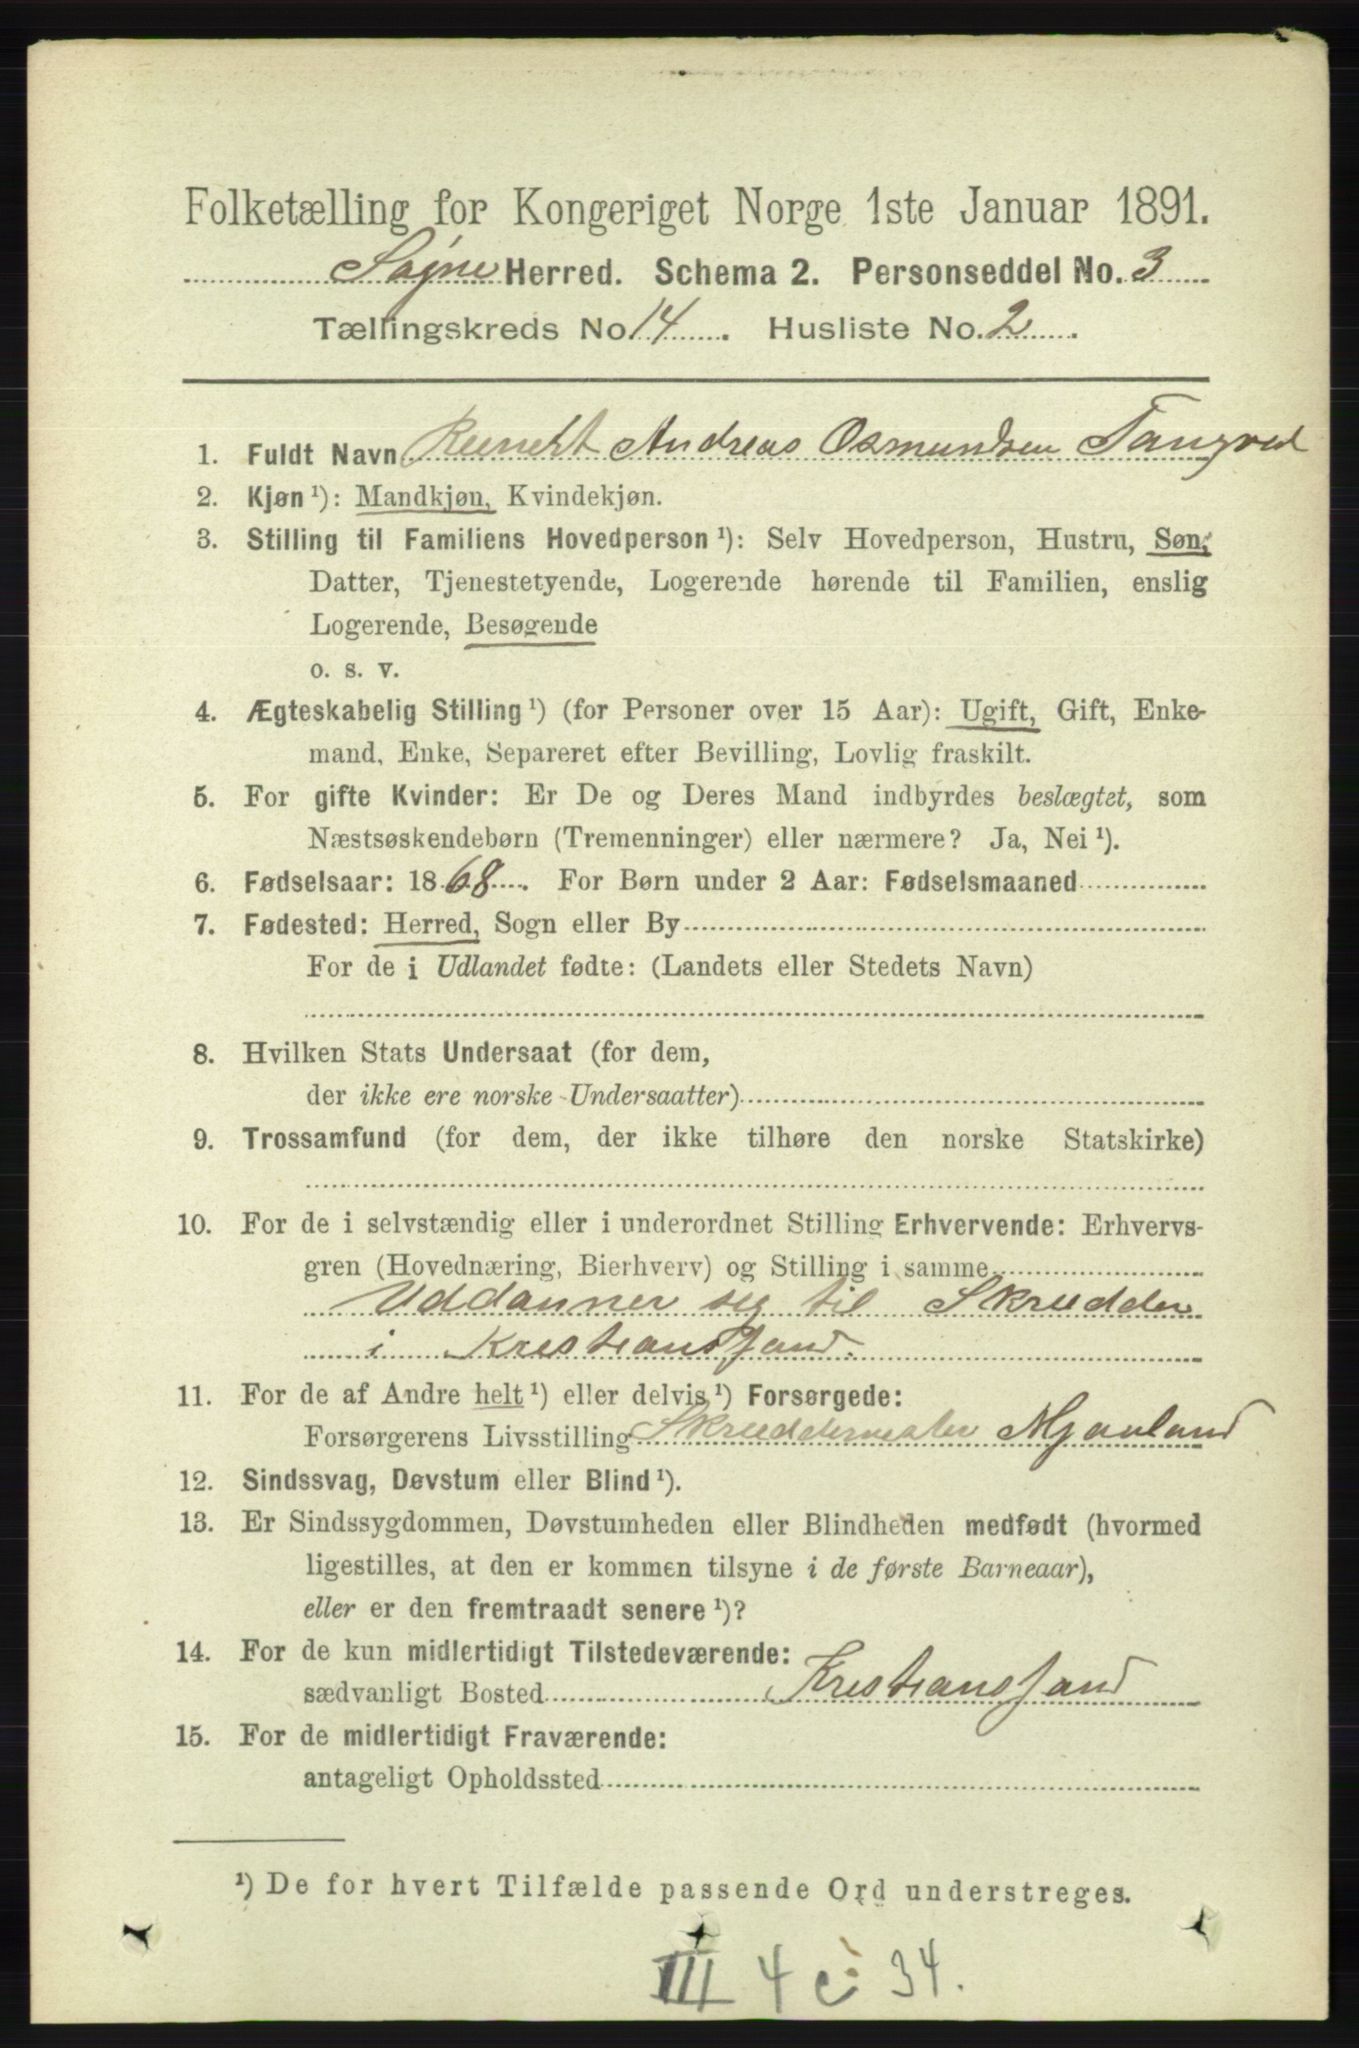 Folketælling for Kongeriget Norge 1ste Januar 1891.
Søgne Herred. Schema 2. Personseddel No. 3
Tællingskreds No. 14. Husliste No. 2.
1. Fuldt Navn Reinert Andreas Osmundsen Tangved
2. Kjøn ¹): Mandkjøn, Kvindekjøn.
3. Stilling til Familiens Hovedperson ¹): Selv Hovedperson, Hustru, Søn,
Datter, Tjenestetyende, Logerende hørende til Familien, enslig
Logerende, Besøgende
o. s. v.
4. Ægteskabelig Stilling ¹) (for Personer over 15 Aar): Ugift, Gift, Enke-
mand, Enke, Separeret efter Bevilling, Lovlig fraskilt.
5. For gifte Kvinder: Er De og Deres Mand indbyrdes beslægtet, som
Næstsøskendebørn (Tremenninger) eller nærmere? Ja, Nei ¹).
6. Fødselsaar: 1868. For Børn under 2 Aar: Fødselsmaaned
7. Fødested: Herred, Sogn eller By
For de i Udlandet fødte: (Landets eller Stedets Navn)
8. Hvilken Stats Undersaat (for dem,
der ikke ere norske Undersaatter)
9. Trossamfund (for dem, der ikke tilhøre den norske Statskirke)
10. For de i selvstændig eller i underordnet Stilling Erhvervende: Erhvervs-
gren (Hovednæring, Bierhverv) og Stilling i samme
Uddanner sig til Skrædder
i Kristianssand.
11. For de af Andre helt ¹) eller delvis ¹) Forsørgede:
Forsørgerens Livsstilling Skræddermester Mjaaland
12. Sindssvag, Døvstum eller Blind ¹).
13. Er Sindssygdommen, Døvstumheden eller Blindheden medfødt (hvormed
ligestilles, at den er kommen tilsyne i de første Barneaar),
eller er den fremtraadt senere ¹)?
14. For de kun midlertidigt Tilstedeværende:
sædvanligt Bosted Kristianssand
15. For de midlertidigt Fraværende:
antageligt Opholdssted
¹) De for hvert Tilfælde passende Ord understreges.
III 4 c: 34.